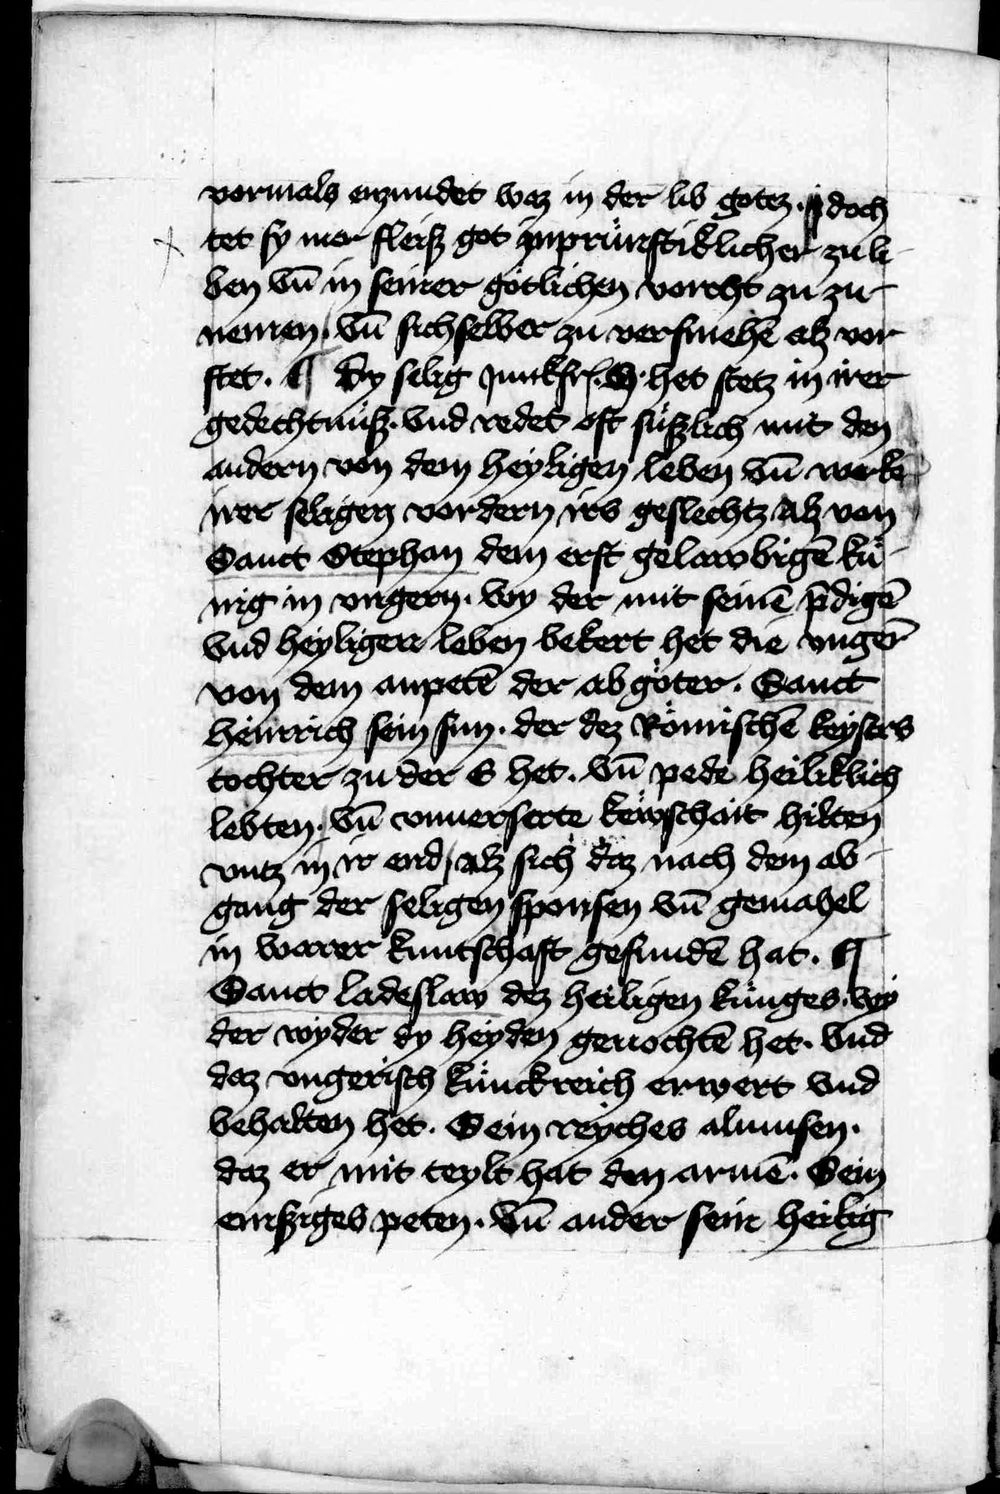 vormals enzundet waz in der lib gotez. jdoch
tet sy mer fleisz got inprünstiklicher zu li-
ben vn̄ in seiner götlichen vorcht zu zu-
nemen, vn̄ sichselber zu versmehē alz vor
stet. ¶ Dy selig Junkfr. het stetz in irer
gedechtnüsz. Vnd redet oft süszlich mit den
andern von dem heyligen leben vn̄ werkē
irer seligen vordern irs geslechtz Alz von
Sanct Stephan dem erst gelawbigē kü-
nig in vngern. Wy der mit seinē p̄digē
Vnd heyligem leben bekert het die vnger̄
von dem anpetē der abgöter. Sanct
Heinrich sein sun. der dez Römischē keysers
tochter zu der E het. Vn̄ pede heiliklich
lebten. Vn̄ vnuerserte kewschait hilten
vntz in ir end, Alz sich daz nach dem ab-
gang der seligen sponsen vn̄ gemahel
in warer kuntschaft gefundē hat. ¶
Sanct Ladeslaw dez heiligen künges. wy
der wyder dy heyden geuochtē het. Vnd
daz vngerisch künckreich erwert vnd
behalten het. Sein reyches almusen.
daz er mit teylt hat den armē. Sein
emsziges peten. Vn̄ ander sein heilig